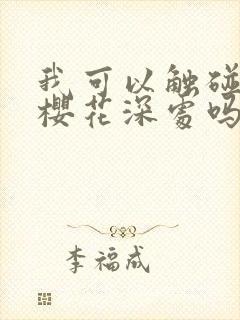 我可以触碰
樱花深处吗
李福成